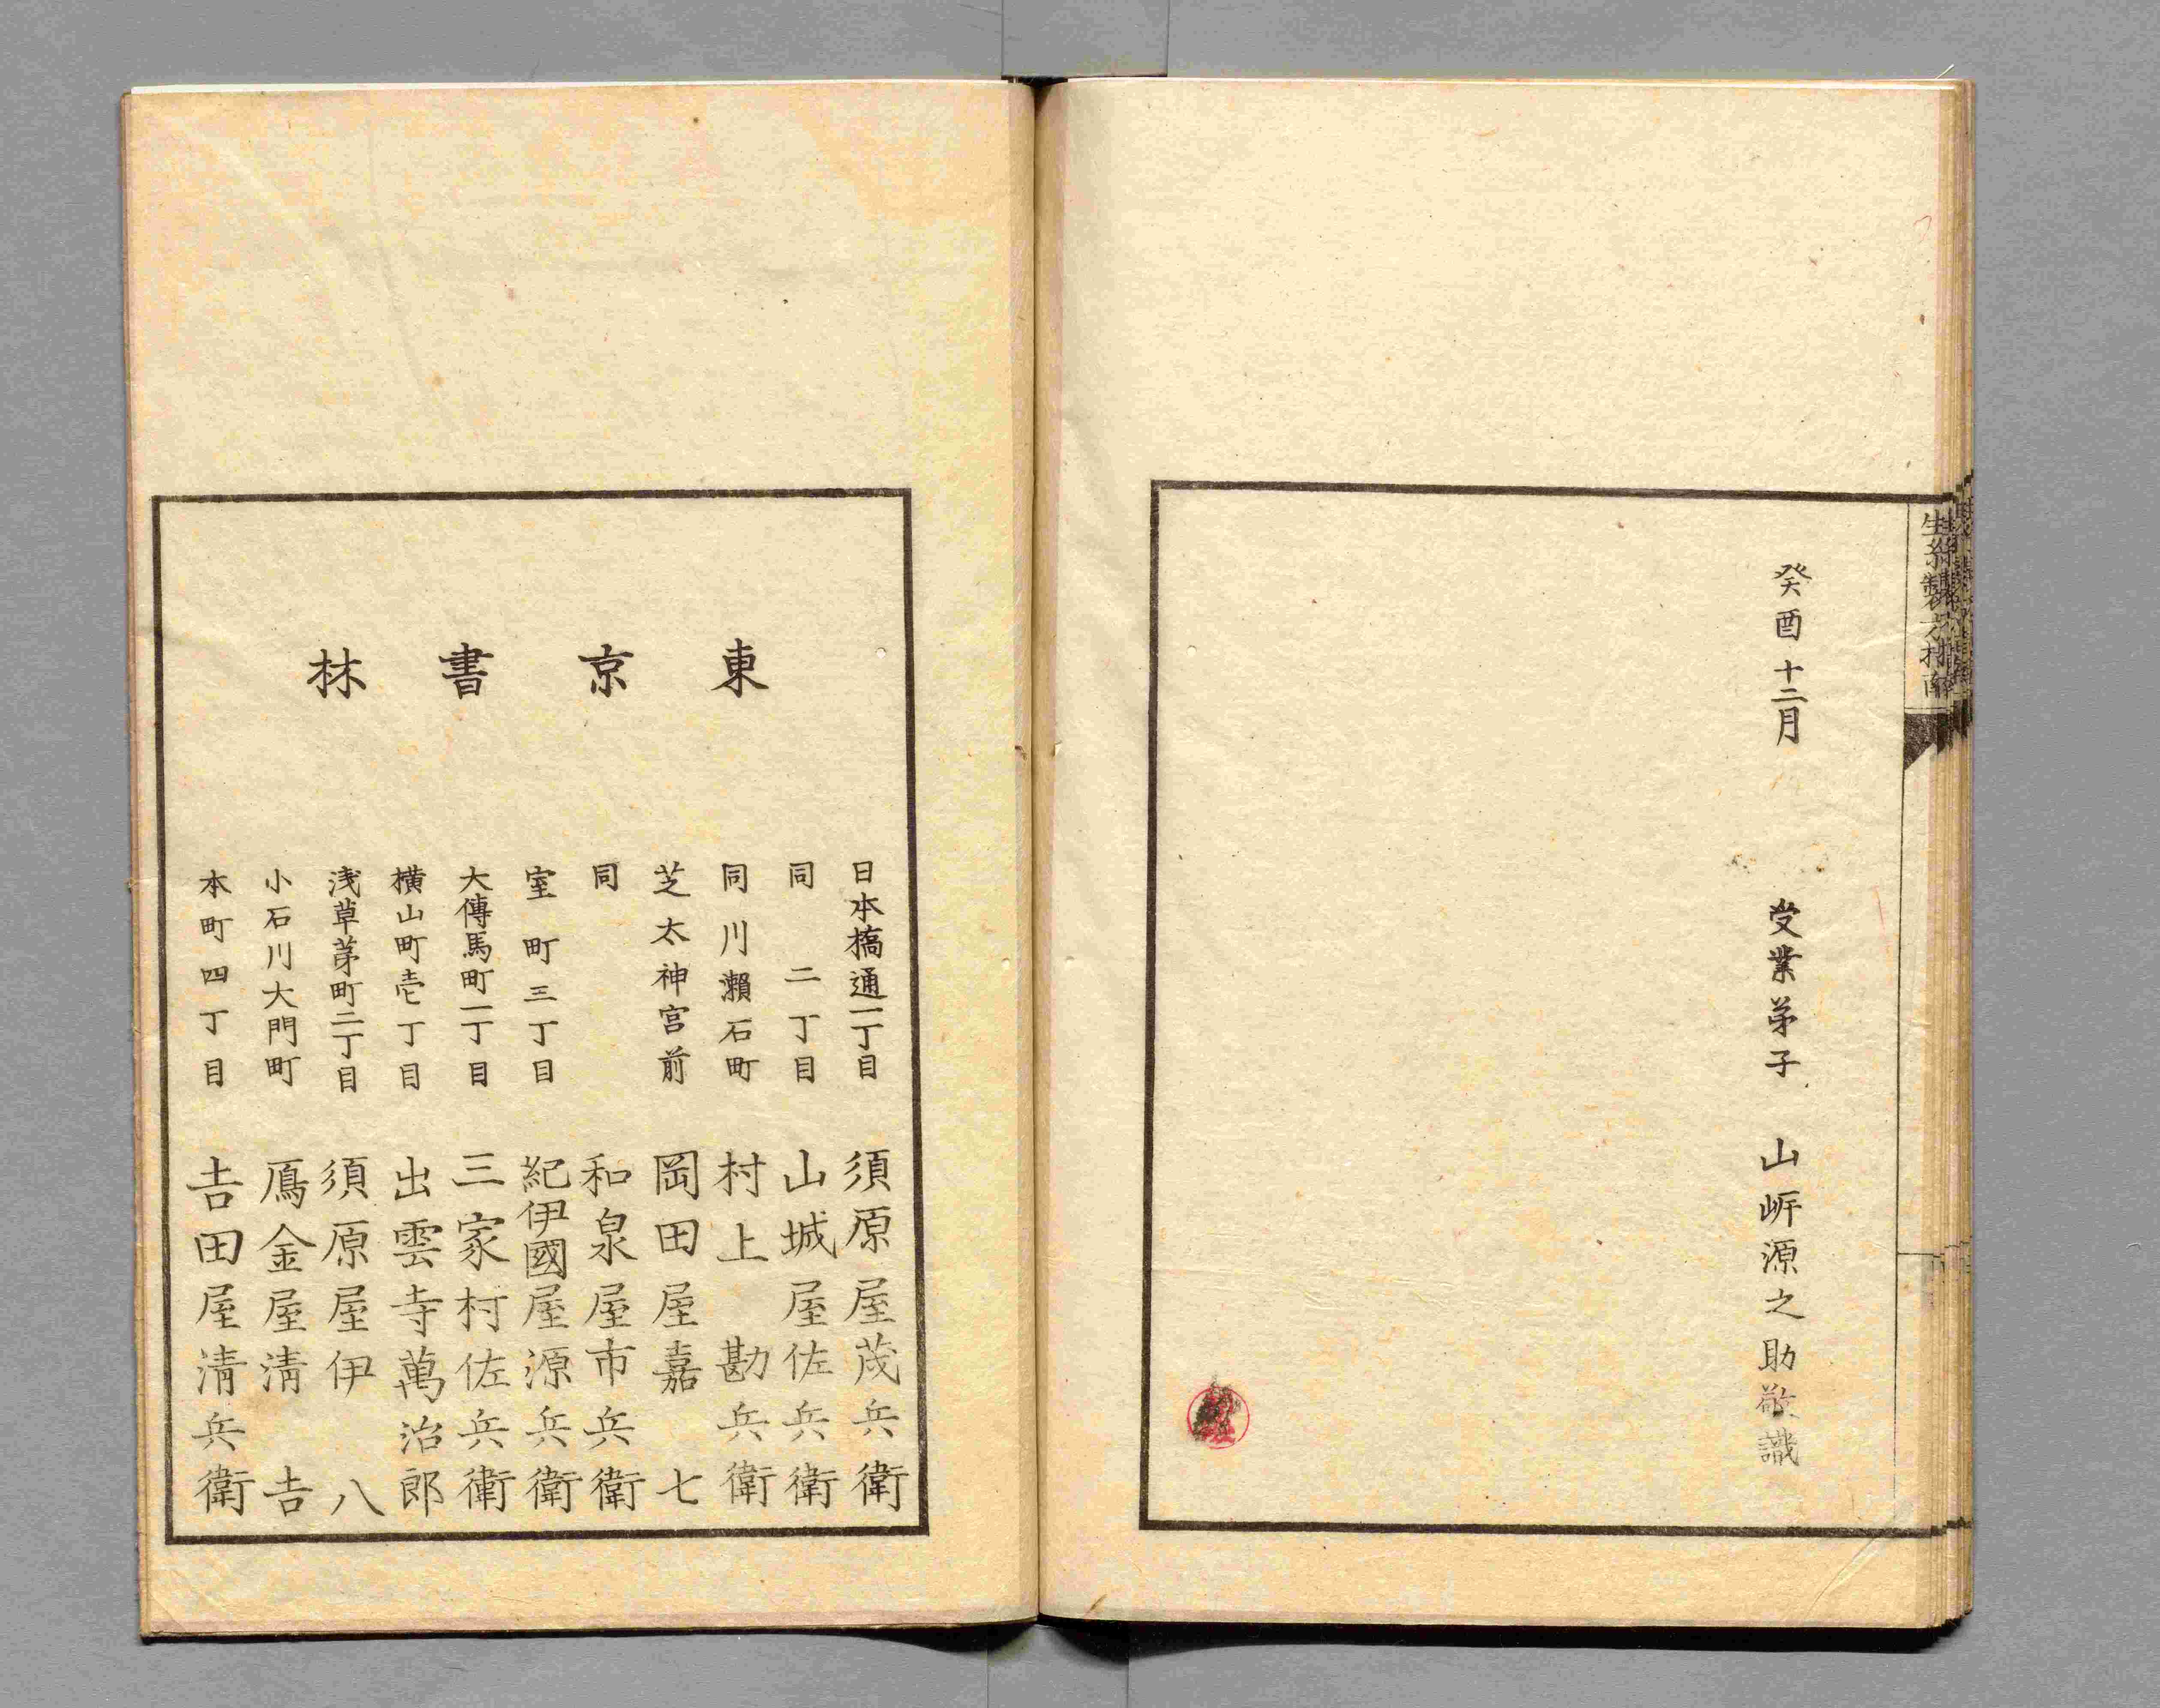 生絲製方指南
癸酉十二月
受業弟子 山岍源之助敬識
東京書林
日本橋通一丁目 須原屋茂兵衛
同 二丁目 山城屋佐兵衛
同川瀬石町 村上勘兵衛
芝太神宮前 岡田屋嘉七
同 和泉屋市兵衛
室町三丁目 紀伊國屋源兵衛
大傳馬町一丁目 三家村佐兵衛
横山町壱丁目 出雲寺萬治郎
浅草茅町二丁目 須原屋伊八
小石川大門町 鴈金屋清吉
本町四丁目 吉田屋清兵衛